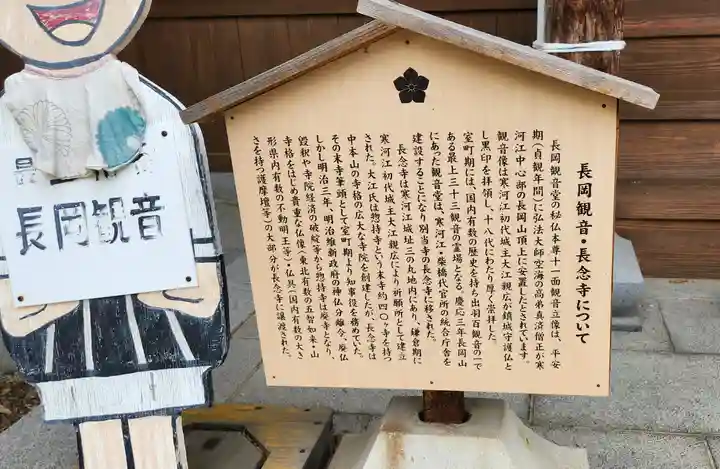 長岡観音・長念寺について
長岡観音堂の秘仏本尊十一面観音立像は、平安
期(貞観年間)に弘法大師空海の高弟真済僧正が寒
河江中心部の長岡山頂上に安置したとされています。
観音像は寒河江初代城主大江親広が鎮城守護仏と
し黒印を拝領し、十八代にわたり厚く崇拝した。
室町期には、国内有数の歴史を持ち出羽百観音の一で
ある最上三十三観音の霊場となる。慶応三年長岡山
にあった観音堂は、寒河江・柴橋代官所の統合庁舎を
建設することになり別当寺の長念寺に移された。
長念寺は寒河江城址三の丸地内にあり、鎌倉期に
寒河江初代城主大江親広により祈願所として建立
された。大江氏は惣持寺という末寺約四〇ヶ寺を持つ
中本山の寺格の広大な寺院を創建したが、長念寺は
その末寺筆頭として室町期より知事役を務めていた。
しかし明治三年、明治維新政府の神仏分離令、廃仏
毀釈や寺院経済の破綻等から惣持寺は廃寺となり、
寺格をはじめ貴重な仏像(東北有数の五智如来・山
形県内有数の不動明王等)・仏具(国内有数の大き
さを持つ護摩壇等)の大部分が長念寺に譲渡された。
長岡観音